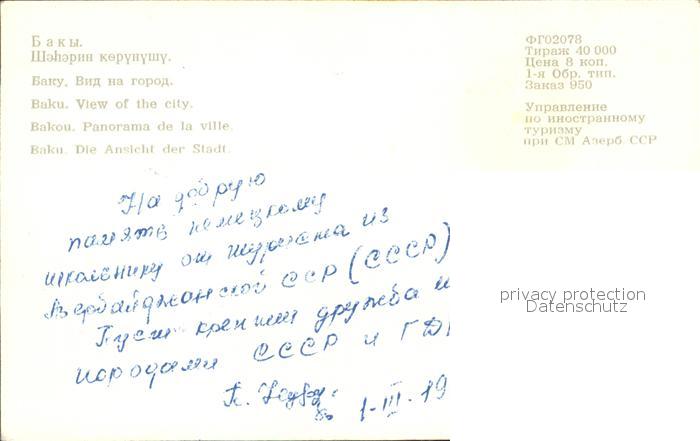 Бакы.
Шәһәрин көрүнүшү.
Баку. Вид на город.
Baku. View of the city.
Bakou. Panorama de la ville.
Baku. Die Ansicht der Stadt.
ФГ02078
Тираж 40 000
Цена 8 коп.
1-я Обр. тип.
Заказ 950
Управление
по иностранному
туризму
при СМ Азерб. ССР
На добрую
память немецкому
школьнику от туриста из
Азербайджанской ССР (СССР)
Пусть крепнет дружба м
народами СССР и ГД
1-III-19
privacy protection
Datenschutz